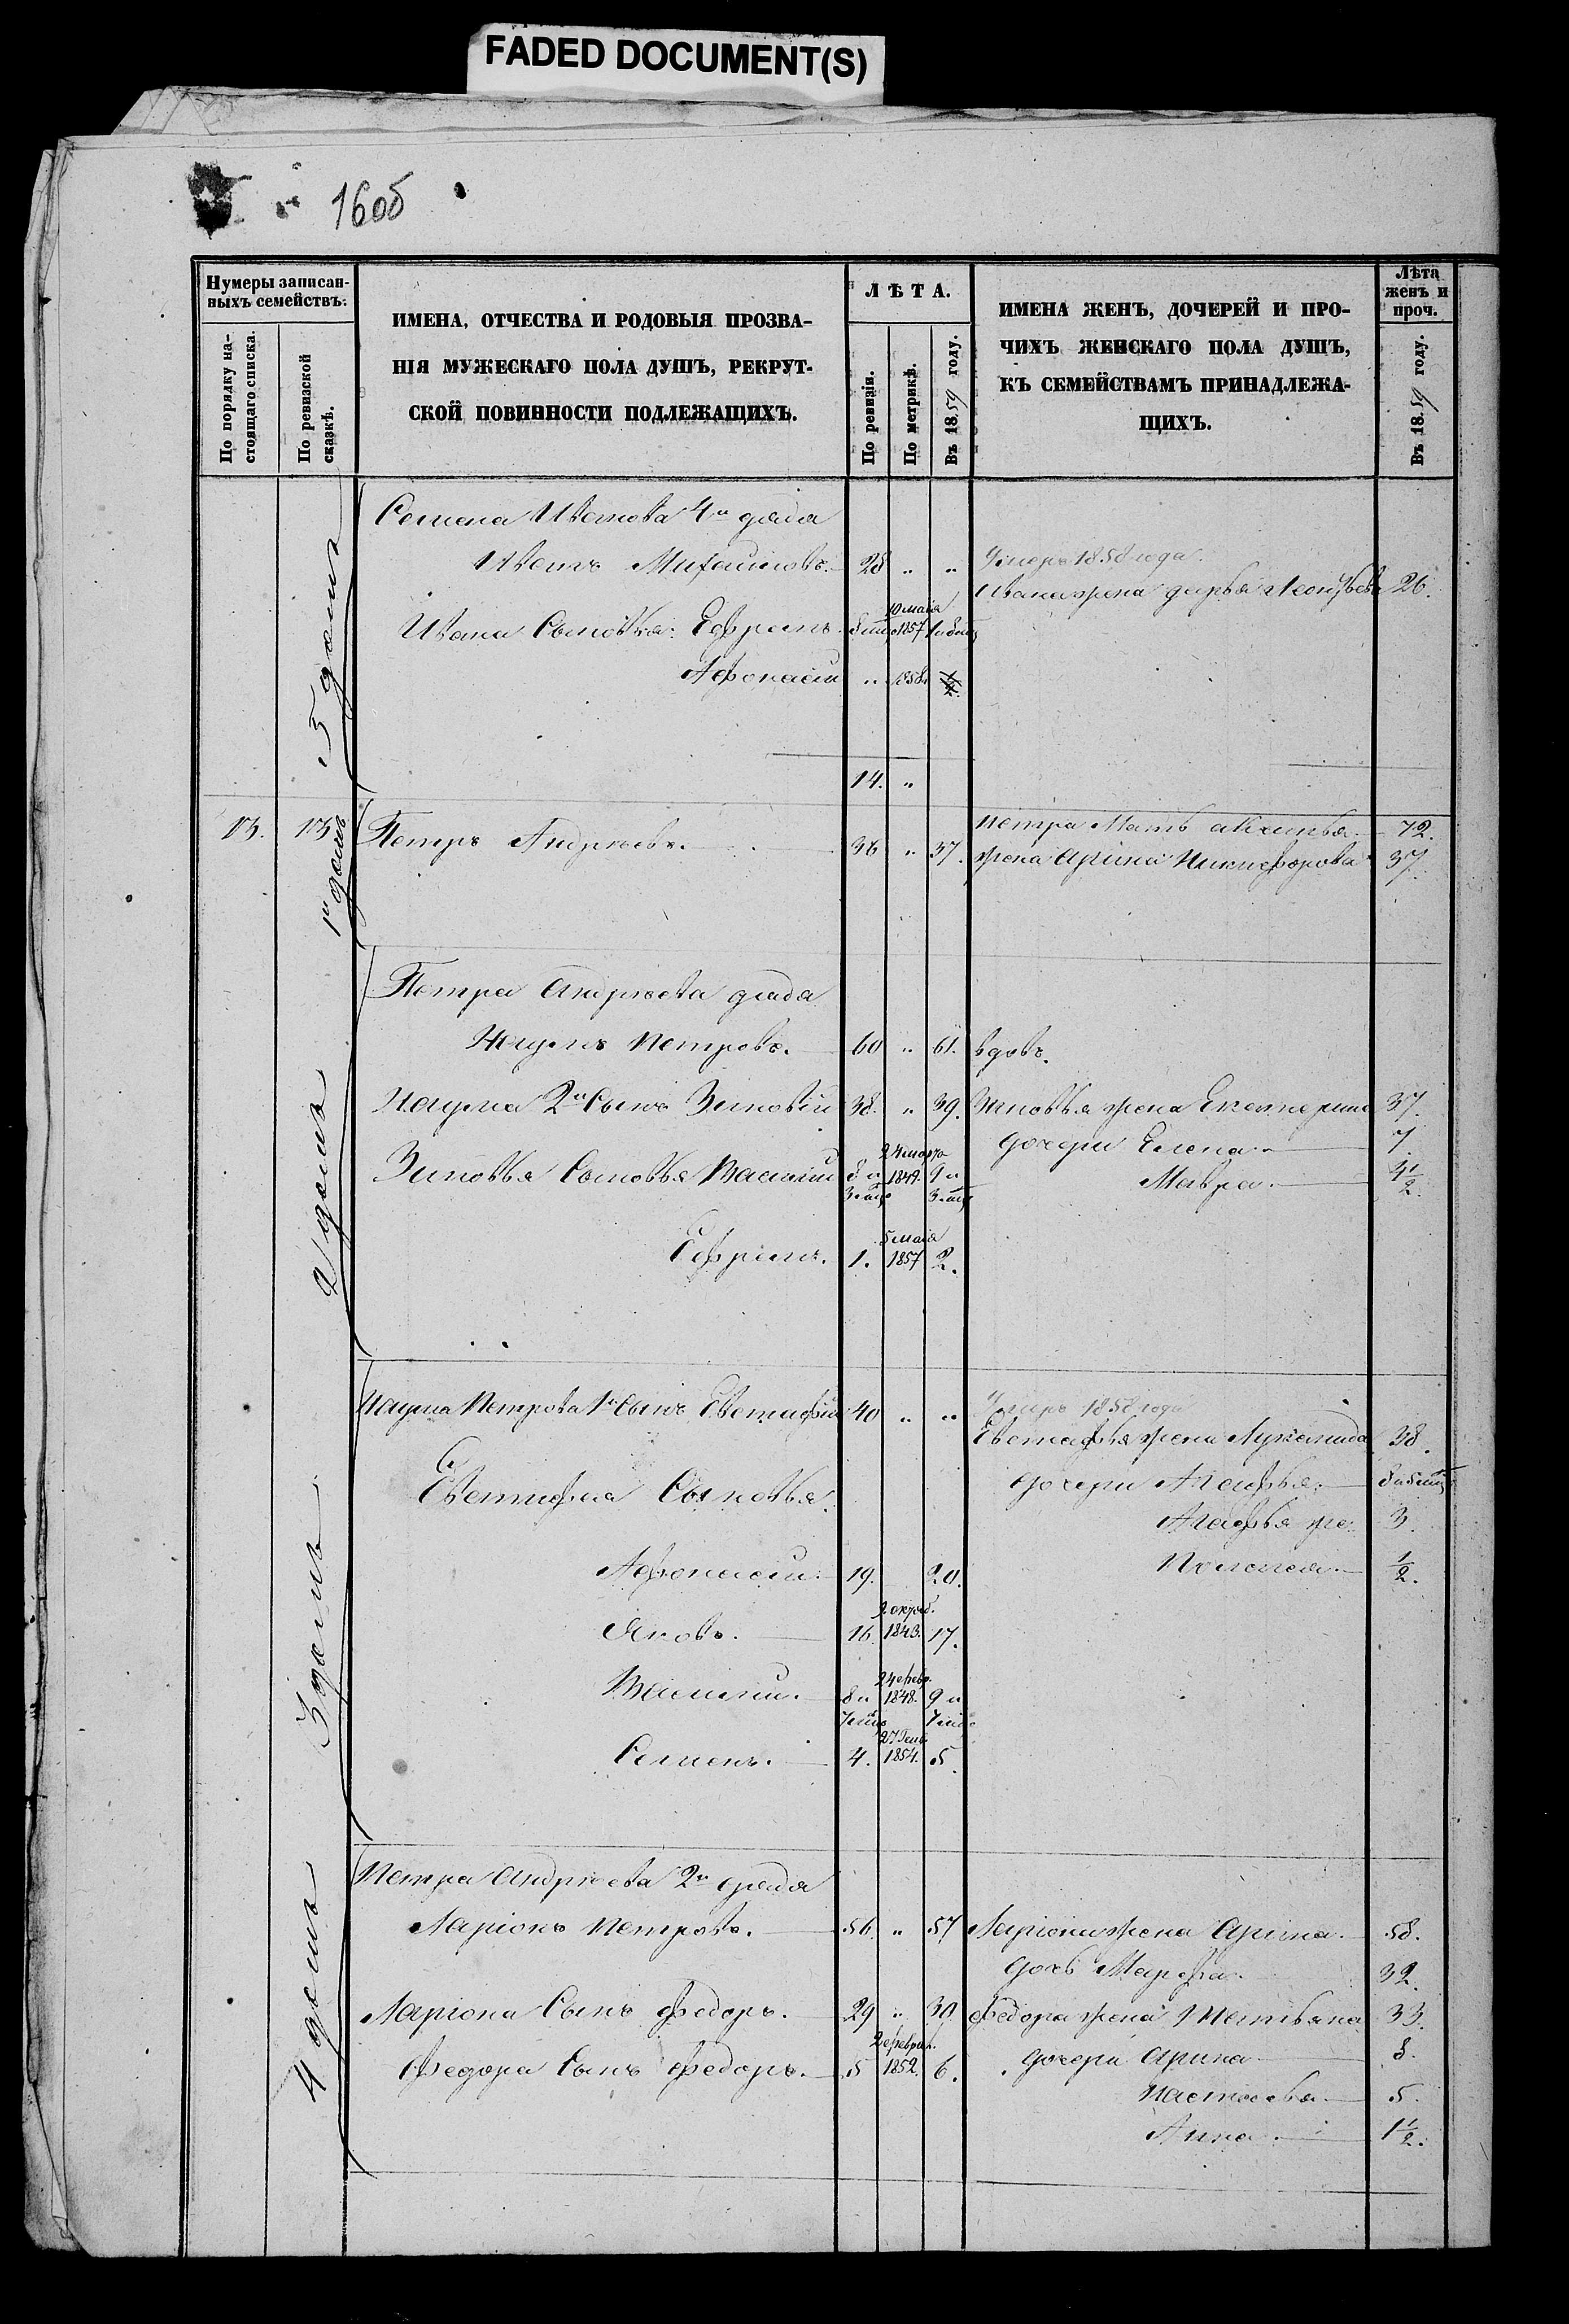 FADED DOCUMENT(S)
160б
Нумеры записан-
ныхъ семействъ:
По порядку на-
стоящаго списка.
По ревизской
сказкѣ.
ИМЕНА, ОТЧЕСТВА И РОДОВЫЯ ПРОЗВА-
НІЯ МУЖЕСКАГО ПОЛА ДУШЪ, РЕКРУТ-
СКОЙ ПОВИННОСТИ ПОДЛЕЖАЩИХЪ.
ЛѢТА.
По ревизіи.
По метрикѣ.
Въ 1859 году.
ИМЕНА ЖЕНЪ, ДОЧЕРЕЙ И ПРО-
ЧИХЪ ЖЕНСКАГО ПОЛА ДУШЪ,
КЪ СЕМЕЙСТВАМЪ ПРИНАДЛЕЖА-
ЩИХЪ.
Лѣта
женъ и
проч.
Въ 1859 году.
5 домъ
Семена Иванова 4й дядя
Иванъ Михайловъ. 28 " " Умеръ 1858 года.
Ивана жена Дарья Леонтьева 26.
10 маія
Ивана Сыновья: Ефремъ 1857
Афонасій " 1858.
14. "
13. 13 1й домъ
Петра Мать 72.
Петръ Андреевъ. 36 " 37. жена Арина Никифорова 37.
2 домъ
Петра Андреева дядя
Наумъ Петровъ. 60 " 61. вдовъ.
Наума 2й Сынъ Зиновій 38. " 39. Зиновья жена Екатерина 37.
дочери Елена 7
24 марта
Зиновья Сыновья Василій 8 и 1849. 9 и Мавра. 4 1/2.
5 маія
Ефремъ. 1. 1857 2.
3 домъ
Наума Петрова 1й Сынъ Евстафій 40 " " Умеръ 1858 года
Евстафья жена 38.
Евстафья Сыновья дочери Агафья
Агафья же 3.
Афонасій. 19. 20. Пелагея. 1/2.
2 октяб.
Яковъ. 16. 1843. 17.
24 февр.
Василій. 8 и 1848. 9 и
27 Генв.
Семенъ. 4. 1854. 5.
4 домъ
Петра Андреева 2й дядя
Ларіонъ Петровъ. 56. " 57 Ларіона жена Арина. 58.
дочь Марфа. 32.
Ларіона Сынъ Федоръ. 29 " 30 Федора жена Татьяна 33.
2 февраля.
Федора Сынъ Федоръ. 5 1852. 6. дочери Арина 8.
Настасья 5.
Анна 1 1/2.